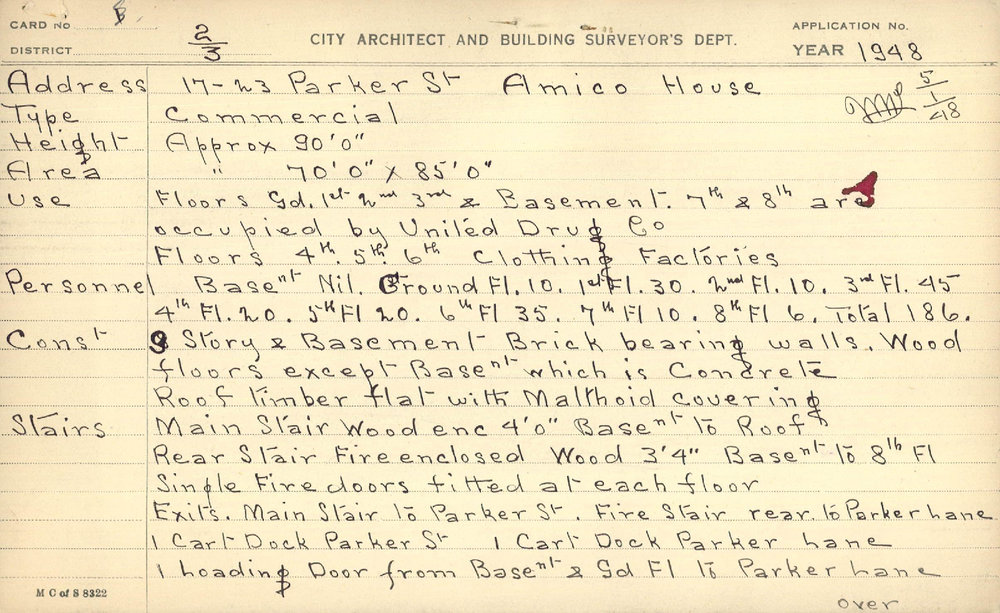 CARD No B
DISTRICT
2/3
CITY ARCHITECT AND BUILDING SURVEYOR'S DEPT.
APPLICATION No.
YEAR 1948
Address 17-23 Parker St Amico House
5/1/48
Type Commercial
Height Approx 90'0"
Area " 70'0" x 85'0"
Use Floors Gd. 1st 2nd 3rd & Basement. 7th & 8th are
occupied by United Drug Co
Floors 4th. 5th. 6th Clothing Factories
Personnel Basent Nil. Ground Fl. 10. 1st Fl. 30. 2nd Fl. 10. 3rd Fl. 45
4th Fl. 20. 5th Fl 20. 6th Fl 35. 7th Fl 10. 8th Fl 6. Total 186.
Const 9 Story & Basement Brick bearing walls. Wood
floors except Basent which is Concrete
Roof timber flat with Malthoid covering
Stairs Main Stair Wood enc 4'0" Basent to Roof
Rear Stair Fire enclosed Wood 3'4" Basent to 8th Fl
Single Fire doors fitted at each floor
Exits. Main Stair to Parker St. Fire Stair rear to Parker Lane
1 Cart Dock Parker St 1 Cart Dock Parker Lane
1 Loading Door from Basent & Gd Fl to Parker Lane
M C of S 8322
over